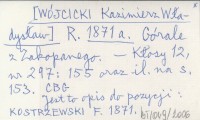 [WÓJCICKI Kazimierz Wła-
dysław] R. 1871a. Górale
z Zakopanego. — Kłosy 12,
nr 297: 155 oraz il. na s.
153. CBG
Jest to opis do pozycji:
KOSTRZEWSKI F. 1871.
61/009/2006